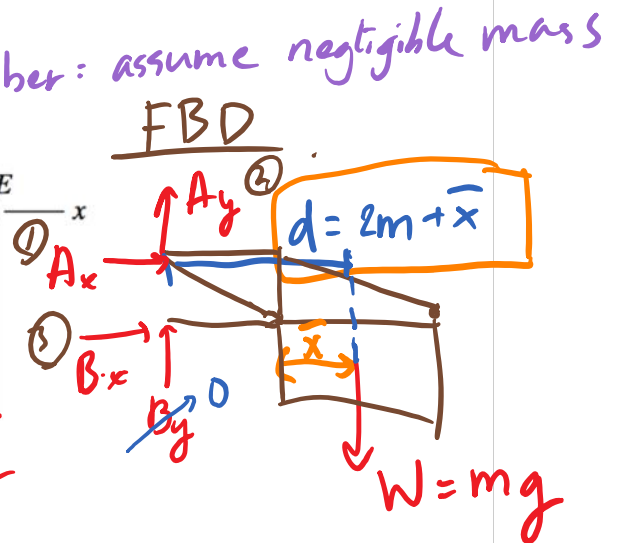 ber: assume negligible mass
FBD
E
x
① Ax
Ay ②
d = 2m + x̄
③ B.x
By 0
x̄
W = mg